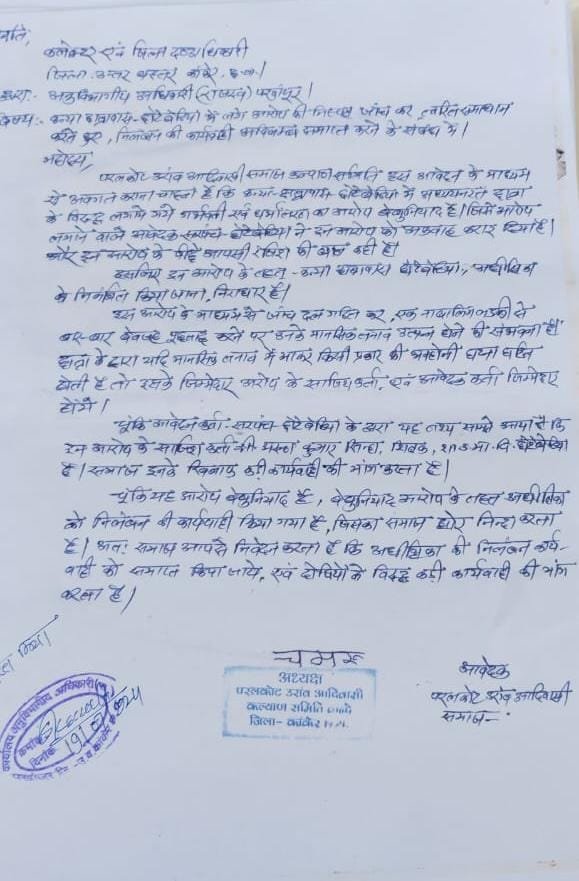 प्रति,
कलेक्टर एवं जिला दण्डाधिकारी
जिला- उत्तर बस्तर कांकेर, छ.ग.।
द्वारा:- अनुविभागीय अधिकारी (राजस्व) पखांजूर।
विषय:- कन्या छात्रावास- छोटेबेठिया में लगे आरोप की निष्पक्ष जांच कर, त्वरित समाधान
करते हुए, निलंबन की कार्यवाही अविलम्ब समाप्त करने के संबंध में।
महोदय,
परलकोट उरांव आदिवासी समाज कल्याण समिति इस आवेदन के माध्यम
से अवगत कराना चाहता है कि कन्या-छात्रावास छोटेबेठिया में अध्ययनरत छात्रा
के विरुद्ध लगाये गये गर्भवती एवं धर्मांतरण का आरोप बेबुनियाद है। जिसे आरोप
लगाने वाले आवेदक सरपंच छोटेबेठिया ने इन आरोप को अफवाह करार दिया है।
और इन आरोप के पीछे आपसी रंजिश की बात कही है।
इसलिए इन आरोप के तहत - कन्या छात्रावास छोटेबेठिया, अधीक्षिका
के निलंबित किया जाना, निराधार है।
इस आरोप के माध्यम से जांच दल गठित कर, एक नाबालिग लड़की से
बार-बार बेवजह पूछताछ करने पर उनके मानसिक तनाव उत्पन्न होने की संभावना है।
छात्रा के द्वारा यदि मानसिक तनाव में आकर किसी प्रकार की अनहोनी घटना घटित
होती है तो इसके जिम्मेदार आरोप के साजिशकर्ता, एवं आवेदक कर्ता जिम्मेदार
होंगे।
चूंकि आवेदनकर्ता- सरपंच छोटेबेठिया के द्वारा यह तथ्य सामने आया है कि
इन आरोप के साजिश कर्ता श्री कुमार सिन्हा, शिक्षक, शा.उ.मा.वि. छोटेबेठिया
है। समाज इनके खिलाफ कड़ी कार्यवाही की मांग करता है।
चूंकि यह आरोप बेबुनियाद है, बेबुनियाद आरोप के तहत अधीक्षिका
को निलंबन की कार्यवाही किया गया है, जिसका समाज घोर निन्दा करता
है। अतः समाज आपसे निवेदन करता है कि अधीक्षिका की निलंबन कार्य-
वाही को समाप्त किया जाये, एवं दोषियों के विरुद्ध कड़ी कार्यवाही की मांग
करता है।
चमरू
अध्यक्ष
परलकोट उरांव आदिवासी
कल्याण समिति
जिला- कांकेर
आवेदक
परलकोट उरांव आदिवासी
समाज-
कार्यालय अनुविभागीय अधिकारी
क्रमांक
दिनांक 19